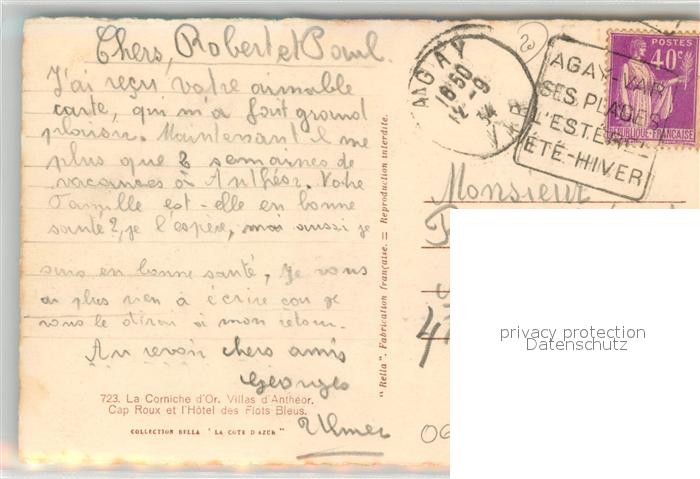 Chers, Robert et Paul.
J'ai reçu votre aimable
carte, qui m'a fait grand
plaisir. Maintenant il me
plus que 2 semaines de
vacances à Anthéor. Votre
famille est-elle en bonne
santé?, je l'espère, moi aussi je
suis en bonne santé, Je vous
ai plus rien à écrire car je
vous le dirai à mon retour.
Au revoir chers amis
Georges
Ulmer
723. La Corniche d'Or. Villas d'Anthéor.
Cap Roux et l'Hôtel des Flots Bleus.
COLLECTION RELLA "LA COTE D'AZUR"
"Rella". Fabrication française. = Reproduction interdite.
AGAY
18 50
12 - 9
34
VAR
AGAY-VAR
SES PLAGES
L'ESTEREL
ÉTÉ-HIVER
POSTES
40c
RÉPUBLIQUE FRANÇAISE
Monsieur
06
privacy protection
Datenschutz